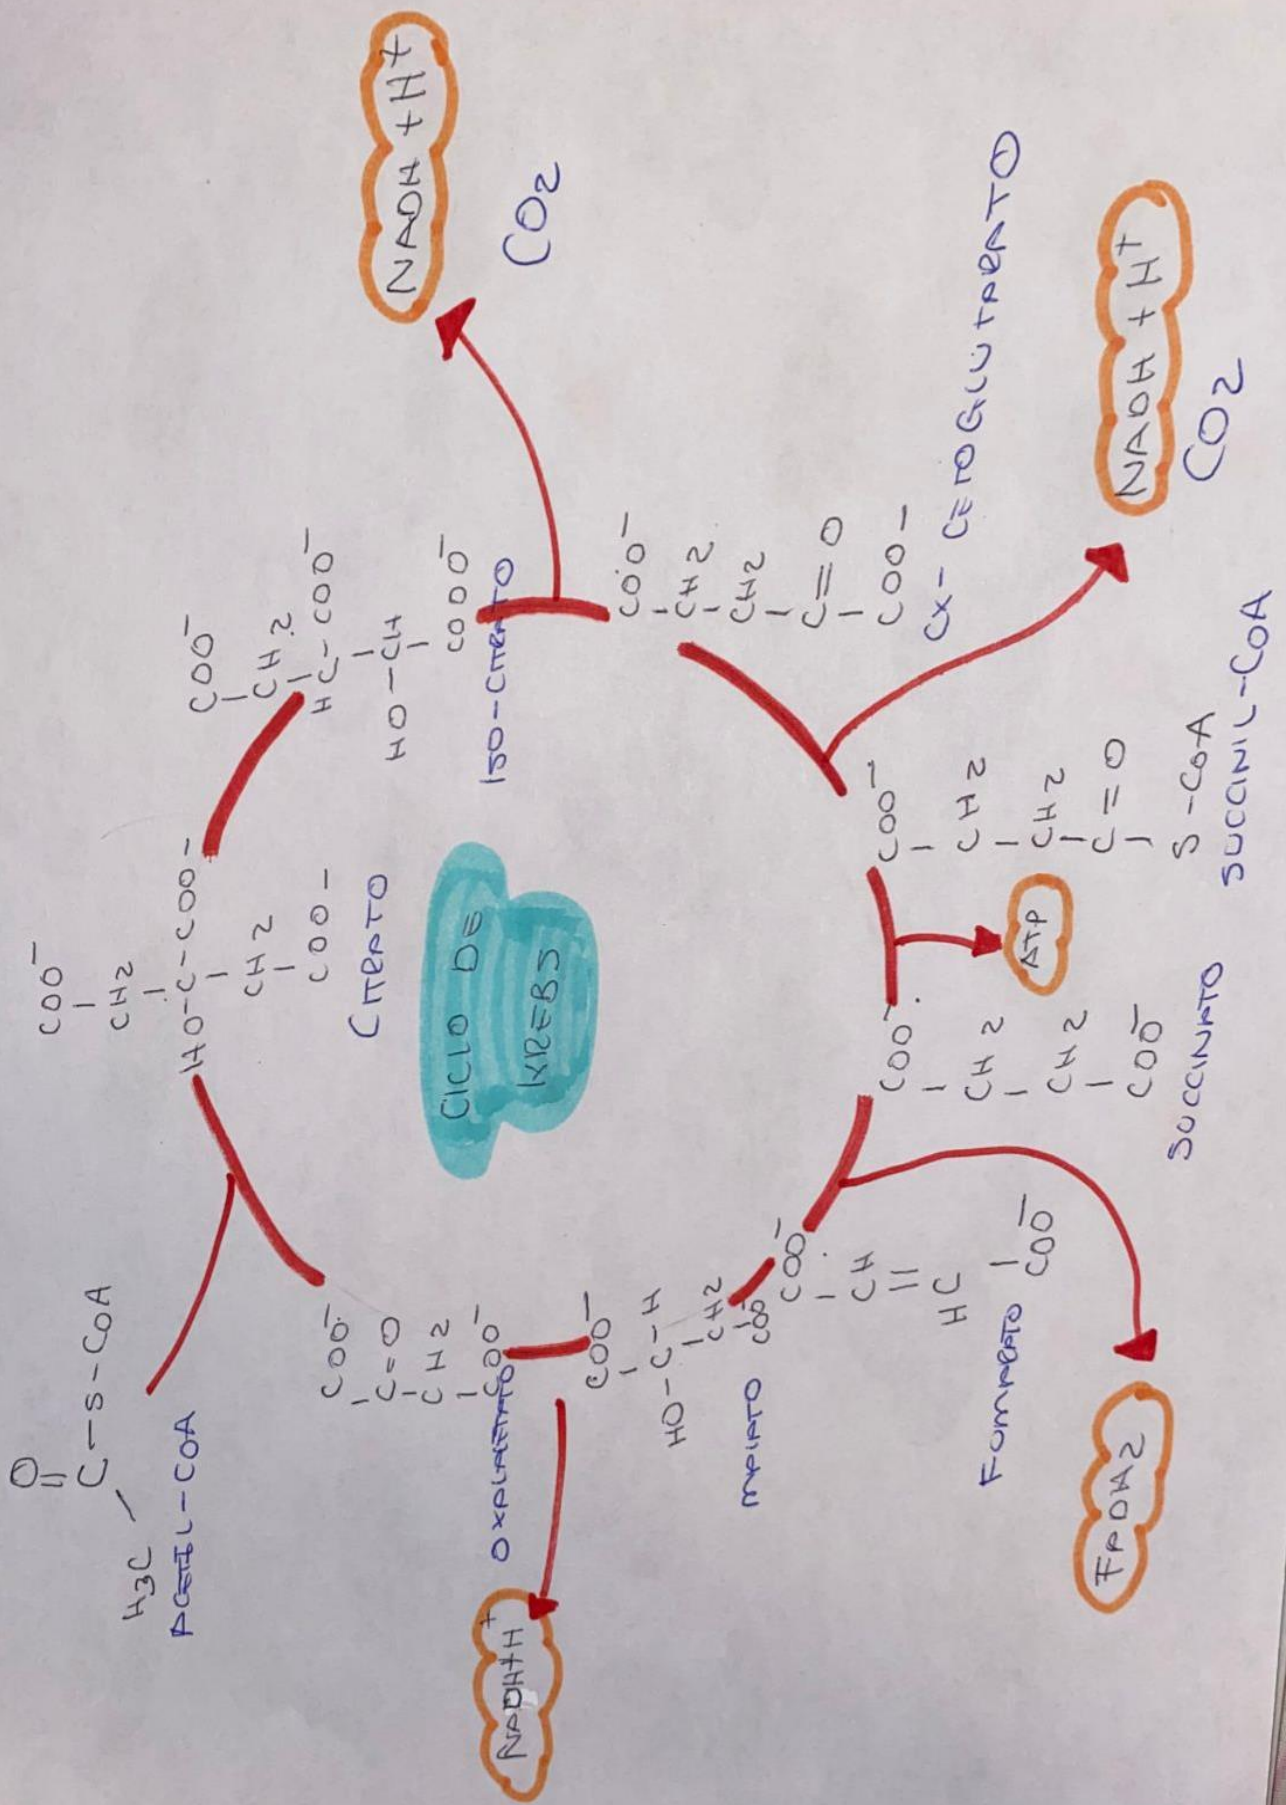 O
||
C-S-COA
H3C
ACETIL-COA
COO⁻
CH2
HO-C-COO-
CH2
COO-
CITRATO
COO⁻
CH2
HC-COO⁻
HO-CH
COO⁻
ISO-CITRATO
NADH + H⁺
CO2
COO⁻
CH2
CH2
C=O
COO-
α-CETOGLUTARATO
NADH + H⁺
CO2
COO⁻
CH2
CH2
C=O
S-COA
SUCCINIL-COA
ATP
COO⁻
CH2
CH2
COO⁻
SUCCINATO
FADH2
COO⁻
CH
||
HC
COO⁻
FUMARATO
COO⁻
HO-C-H
CH2
COO⁻
MALATO
NADH+H⁺
COO⁻
C=O
CH2
COO⁻
CICLO DE
KREBS